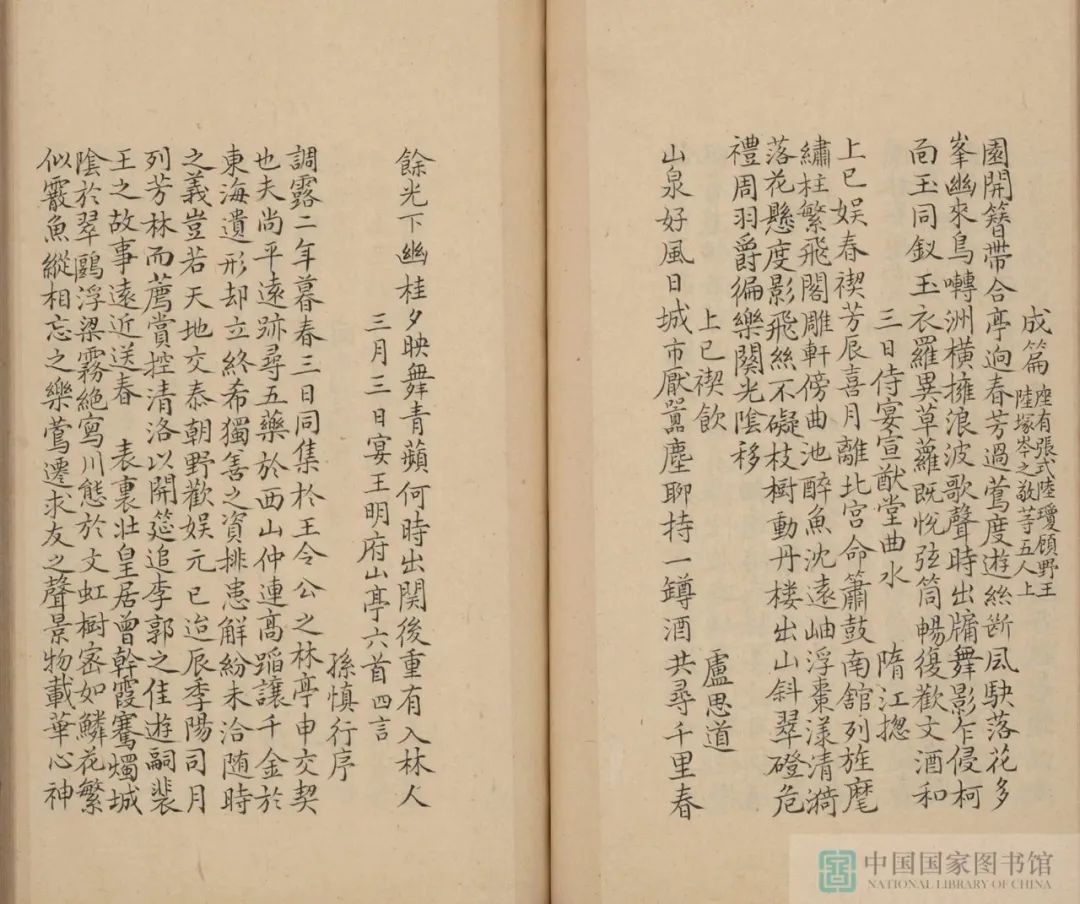 成篇 座有張式陸瓊顧野王
陸塚岑之敬䒭五人上
園開簪帶合亭逈春芳過鶯度遊絲斷風駃落花多
峯幽來鳥囀洲橫擁浪波歌聲時出牖舞影乍侵柯
面玉同釵玉衣羅異草蘿既恱弦筒暢復歡文酒和
三日侍宴宣猷堂曲水 隋江揔
上巳娱春禊芳辰喜月離北宮命簫鼓南舘列旌麾
繡柱繁飛閣雕軒傍曲池醉魚沈遠岫浮棗漾清漪
落花懸度影飛絲不礙枝樹動丹楼出山斜翠磴危
禮周羽爵徧樂闋光陰移
上巳禊飲 盧思道
山泉好風日城市厭囂塵聊持一罇酒共尋千里春
餘光下幽桂夕映舞青蘋何時出関後重有入林人
三月三日宴王明府山亭六首四言
孫慎行序
調露二年暮春三日同集於王令公之林亭申交契
也夫尚平遠跡尋五藥於西山仲連高蹈讓千金於
東海遺形却立終希獨善之資排患解紛未洽随時
之義豈若天地交泰朝野歡娱元巳迨辰季陽司月
列芳林而薦賞控清洛以開筵追李郭之佳遊嗣裴
王之故事遠近送春 表裏壯皇居曾幹霞騫燭城
陰於翠鷁浮梁霧絶寫川態於文虹樹密如鱗花繁
似霰魚縱相忘之樂鶯遷求友之聲景物載華心神
中国国家图书馆
NATIONAL LIBRARY OF CHINA